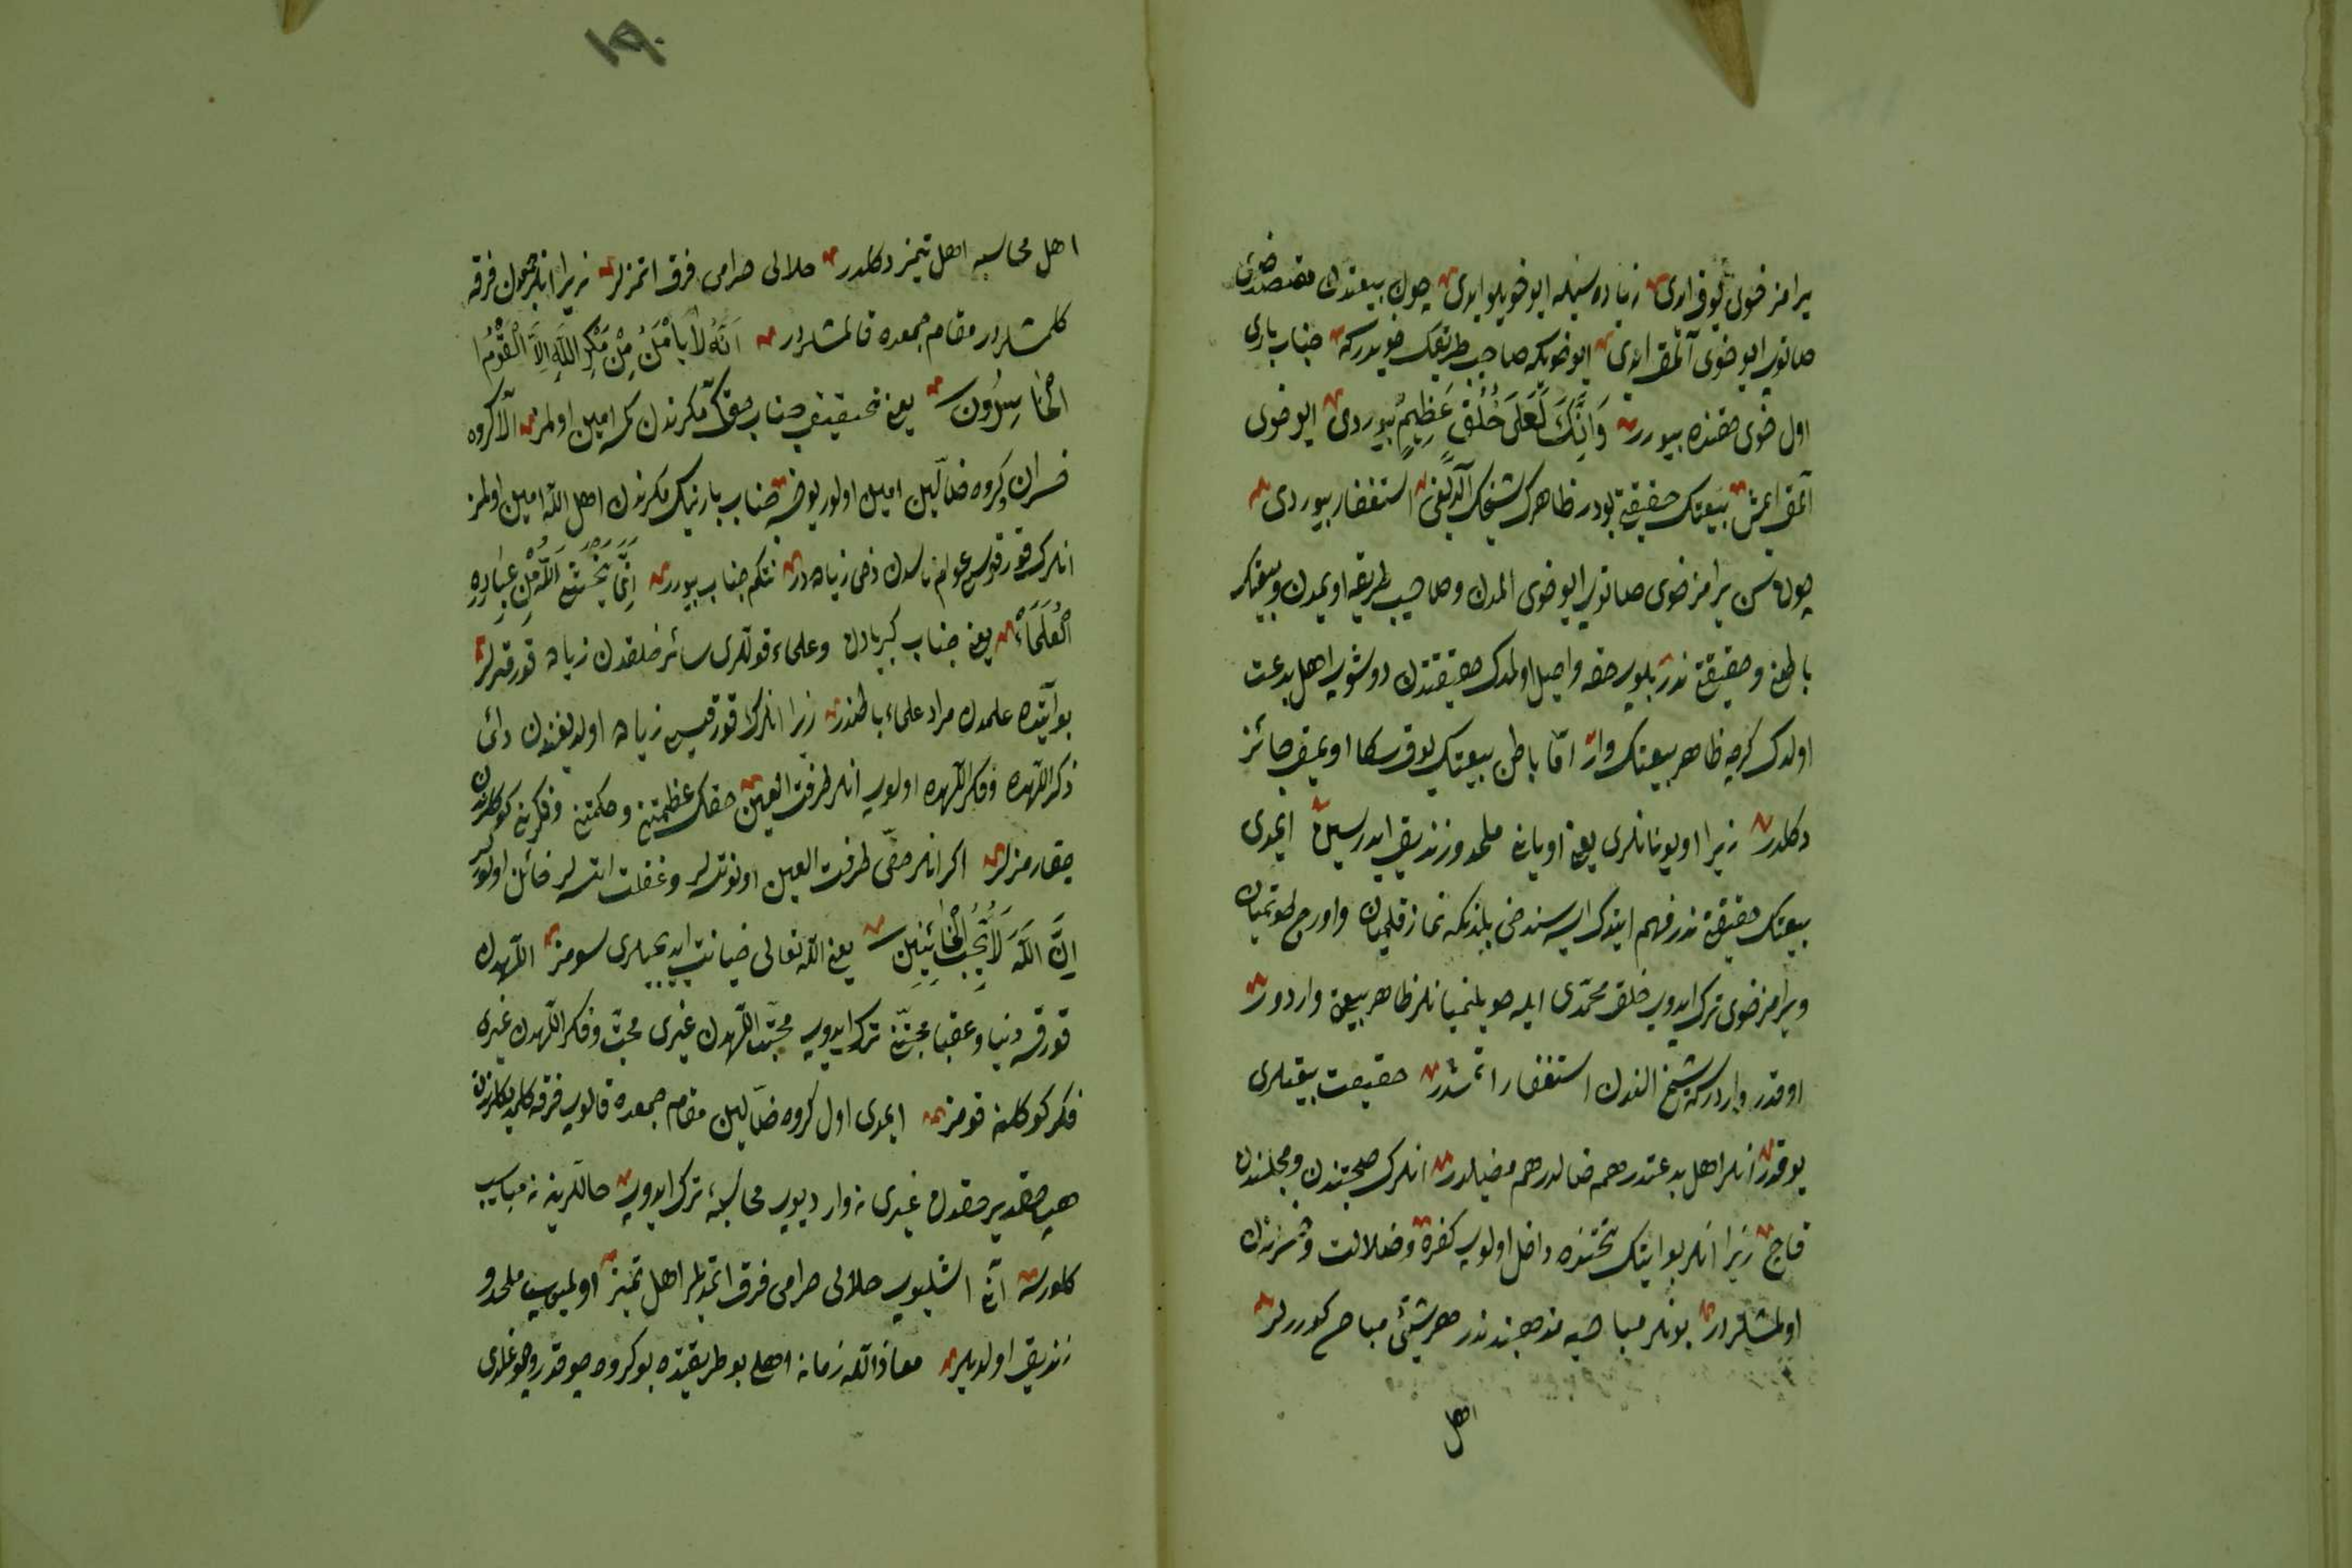 یرامز خوی یوق ایدی زیاده سیله ایو خویلو ایدی چون بیعتدن مقصد خوی
صاتوب ایو خوی آلمق ایدی ایو خویکه صاحب طریقک خویدر که جناب باری
اول خوی حقنده بیورر وَاِنَّكَ لَعَلَى خُلُقٍ عَظِيمٍ بیوردی ایو خوی
آلمق ایمش بیعتک حقیقتی بودر ظاهرک شیخک آلدیغی استغفار بیوردی
چون سن یرامز خوی صاتوب ایو خوی المدک و صاحب طریقه اویمدک و بیعتک
باطن و حقیقتی ندر بلوب حقه واصل اولمدک حقیقتدن دوشوب اهل بدعت
اولدک کرچه ظاهر بیعتک وار امّا باطن بیعتک یوق سکا اویمق جائز
دکلدر زیرا اویونانلری یعنی اویانی ملحد و زندیق ایدرسین ایمدی
بیعتک حقیقتی ندر فهم ایتدک ایسه سندخی بلدککه نماز قلمیان و اورج طوتمیان
و یرامز خوی ترک ایدوب خلق محمّدی ایله خویلنمیانلر ظاهر بیعتی واردر
او قدر واردر که شیخ الندن استغفار اتمشدر حقیقت بیعتلری
یوقدر انلر اهل بدعتدر هم ضالدر هم مضلدر انلرک صحبتندن و مجلسندن
قاچ زیرا انلر بو ایتک تحتنده داخل اولوب کفره و ضلالت و شرزدن
اولمشلردر بونلر مباحیه مذهبنددر هر شیئی مباح کوررلر
اهل
١٩٠
اهل محاسبه اهل تمیز دکلدر حلالی حرامی فرق اتمزلر زیرا انلر چون فرقه
کلمشلردر مقام جمعده قالمشلردر اَنَّهُ لَا يَأْمَنُ مِنْ مَكْرِ اللَّهِ اِلَّا الْقَوْمُ
الْخَاسِرُونَ یعنی تحقیق جناب حقک مکرندن کمسه امین اولمز الّا کروه
خسران و کروه ضالّین امین اولور یوخسه جناب بارینک مکرندن اهل الله امین اولمز
انلرک قورقوسی عوام ناسدن دخی زیاده در نتکم جناب بیورر اِنَّمَا يَخْشَى اللَّهَ مِنْ عِبَادِهِ
الْعُلَمَاءُ یعنی جناب کبریادن و علماء قوللری سائر خلقدن زیاده قورقرلر
بو آیتده علمدن مراد علماء باطندر زیرا انلرک قورقوسی زیاده اولدیغندن دائم
ذکر اللهده و فکر اللهده اولوب انلر طرفت العین حقک عظمتنی و حکمتنی و فکرینی کوکللرندن
چقارمزلر اکر انلر حقّی طرفت العین اونوتسه لر و غفلت اتسه لر خائن اولورلر
اِنَّ اللَّهَ لَا يُحِبُّ الْخَائِنِينَ یعنی الله تعالی خیانت ایدیجیلری سومز اللهدن
قورقه دنیا و عقبا محبّتن ترک ایدوب محبّت اللهدن غیری محبّت و فکر اللهدن غیری
فکر کوکلنه قومز ایمدی اول کروه ضالّین مقام جمعده قالوب فرقه کلمدکلرندن
هب حقدر حقدن غیری نه وار دیوب محاسبه ترک ایدوب حاللرینه نه مناسب
کلورسه آنی اشلیوب حلالی حرامی فرق اتمدیلر اهل تمیز اولمیوب ملحد و
زندیق اولدیلر معاذ الله زمانه اهلی بو طریقتده بو کروه چوقدر و چوغلدی